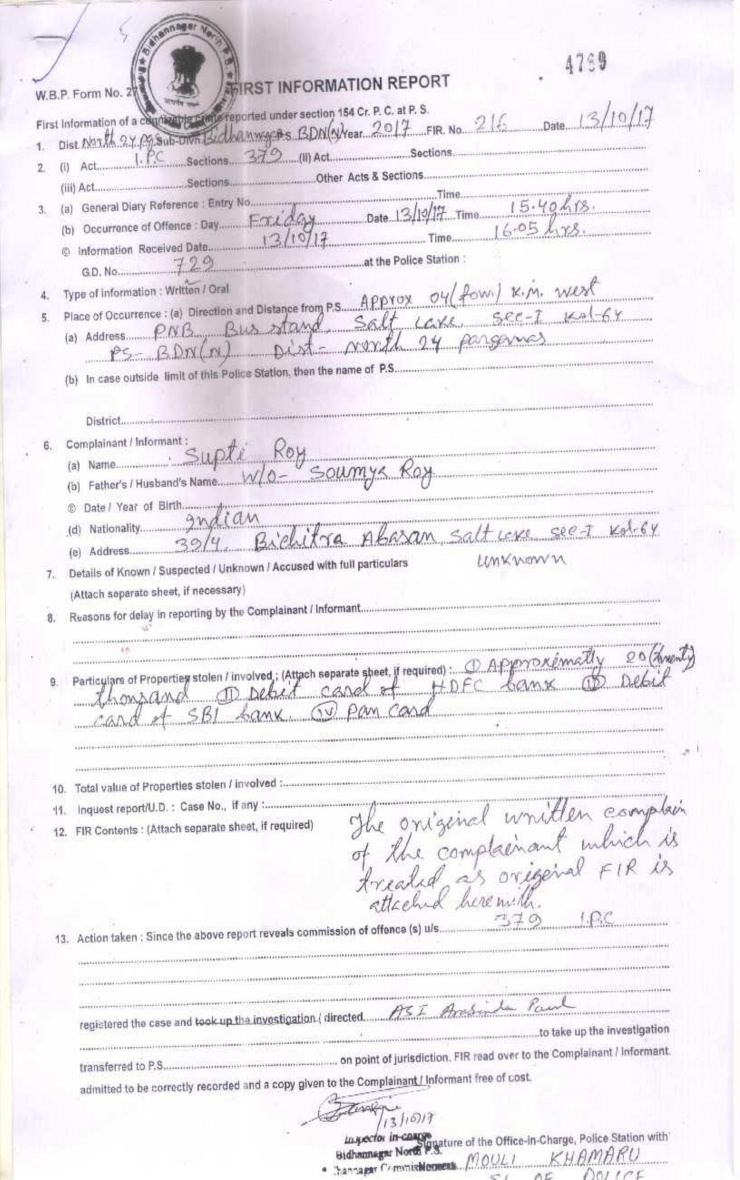 Bidhannagar North P.S.
4769
W.B.P. Form No. 27
FIRST INFORMATION REPORT
First Information of a cognizable crime reported under section 154 Cr. P. C. at P. S.
1. Dist. North 24 Pgs Sub-Divn Bidhannagar P.S. BDN(N) Year 2017 FIR. No. 216 Date 13/10/17
2. (I) Act I.P.C Sections 379 (II) Act Sections
(iii) Act Sections Other Acts & Sections
3. (a) General Diary Reference : Entry No. Time
(b) Occurrence of Offence : Day Friday Date 13/10/17 Time 15.40 hrs.
© Information Received Date 13/10/17 Time 16.05 hrs.
G.D. No. 729 at the Police Station :
4. Type of information : Written / Oral
5. Place of Occurrence : (a) Direction and Distance from P.S. Approx 04 (fow) K.M. west
(a) Address PNB Bus stand, Salt Lake, Sec-I Kol-64
PS- BDN(N) Dist- North 24 parganas
(b) In case outside limit of this Police Station, then the name of P.S.
District
6. Complainant / Informant :
(a) Name Supti Roy
(b) Father's / Husband's Name W/o- Soumya Roy
© Date / Year of Birth
(d) Nationality Indian
(e) Address 39/4, Bichitra Abasan, Salt Lake Sec-I Kol-64
7. Details of Known / Suspected / Unknown / Accused with full particulars Unknown
(Attach separate sheet, if necessary)
8. Reasons for delay in reporting by the Complainant / Informant
9. Particulars of Properties stolen / involved ; (Attach separate sheet, if required) : (I) Approximatly 20 (twenty)
thousand (II) Debit card of HDFC bank (III) Debit
card of SBI bank. (IV) Pan Card
10. Total value of Properties stolen / involved :
11. Inquest report/U.D. : Case No., if any :
12. FIR Contents : (Attach separate sheet, if required) The original written complain
of the complainant which is
treated as original FIR is
attached herewith.
13. Action taken : Since the above report reveals commission of offence (s) u/s 379 I.P.C
registered the case and took up the investigation ( directed ASI Paul
to take up the investigation
transferred to P.S. on point of jurisdiction. FIR read over to the Complainant / Informant.
admitted to be correctly recorded and a copy given to the Complainant / Informant free of cost.
13/10/17
Inspector in-charge
Signature of the Office-in-Charge, Police Station with
Bidhannagar North P.S.
MOULI KHAMARU
SI OF POLICE